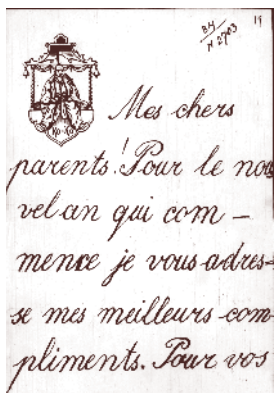 19
N 2703
Mes chers
parents! Pour le nou
vel an qui com-
mence je vous adres-
se mes meilleurs com
pliments. Pour vos